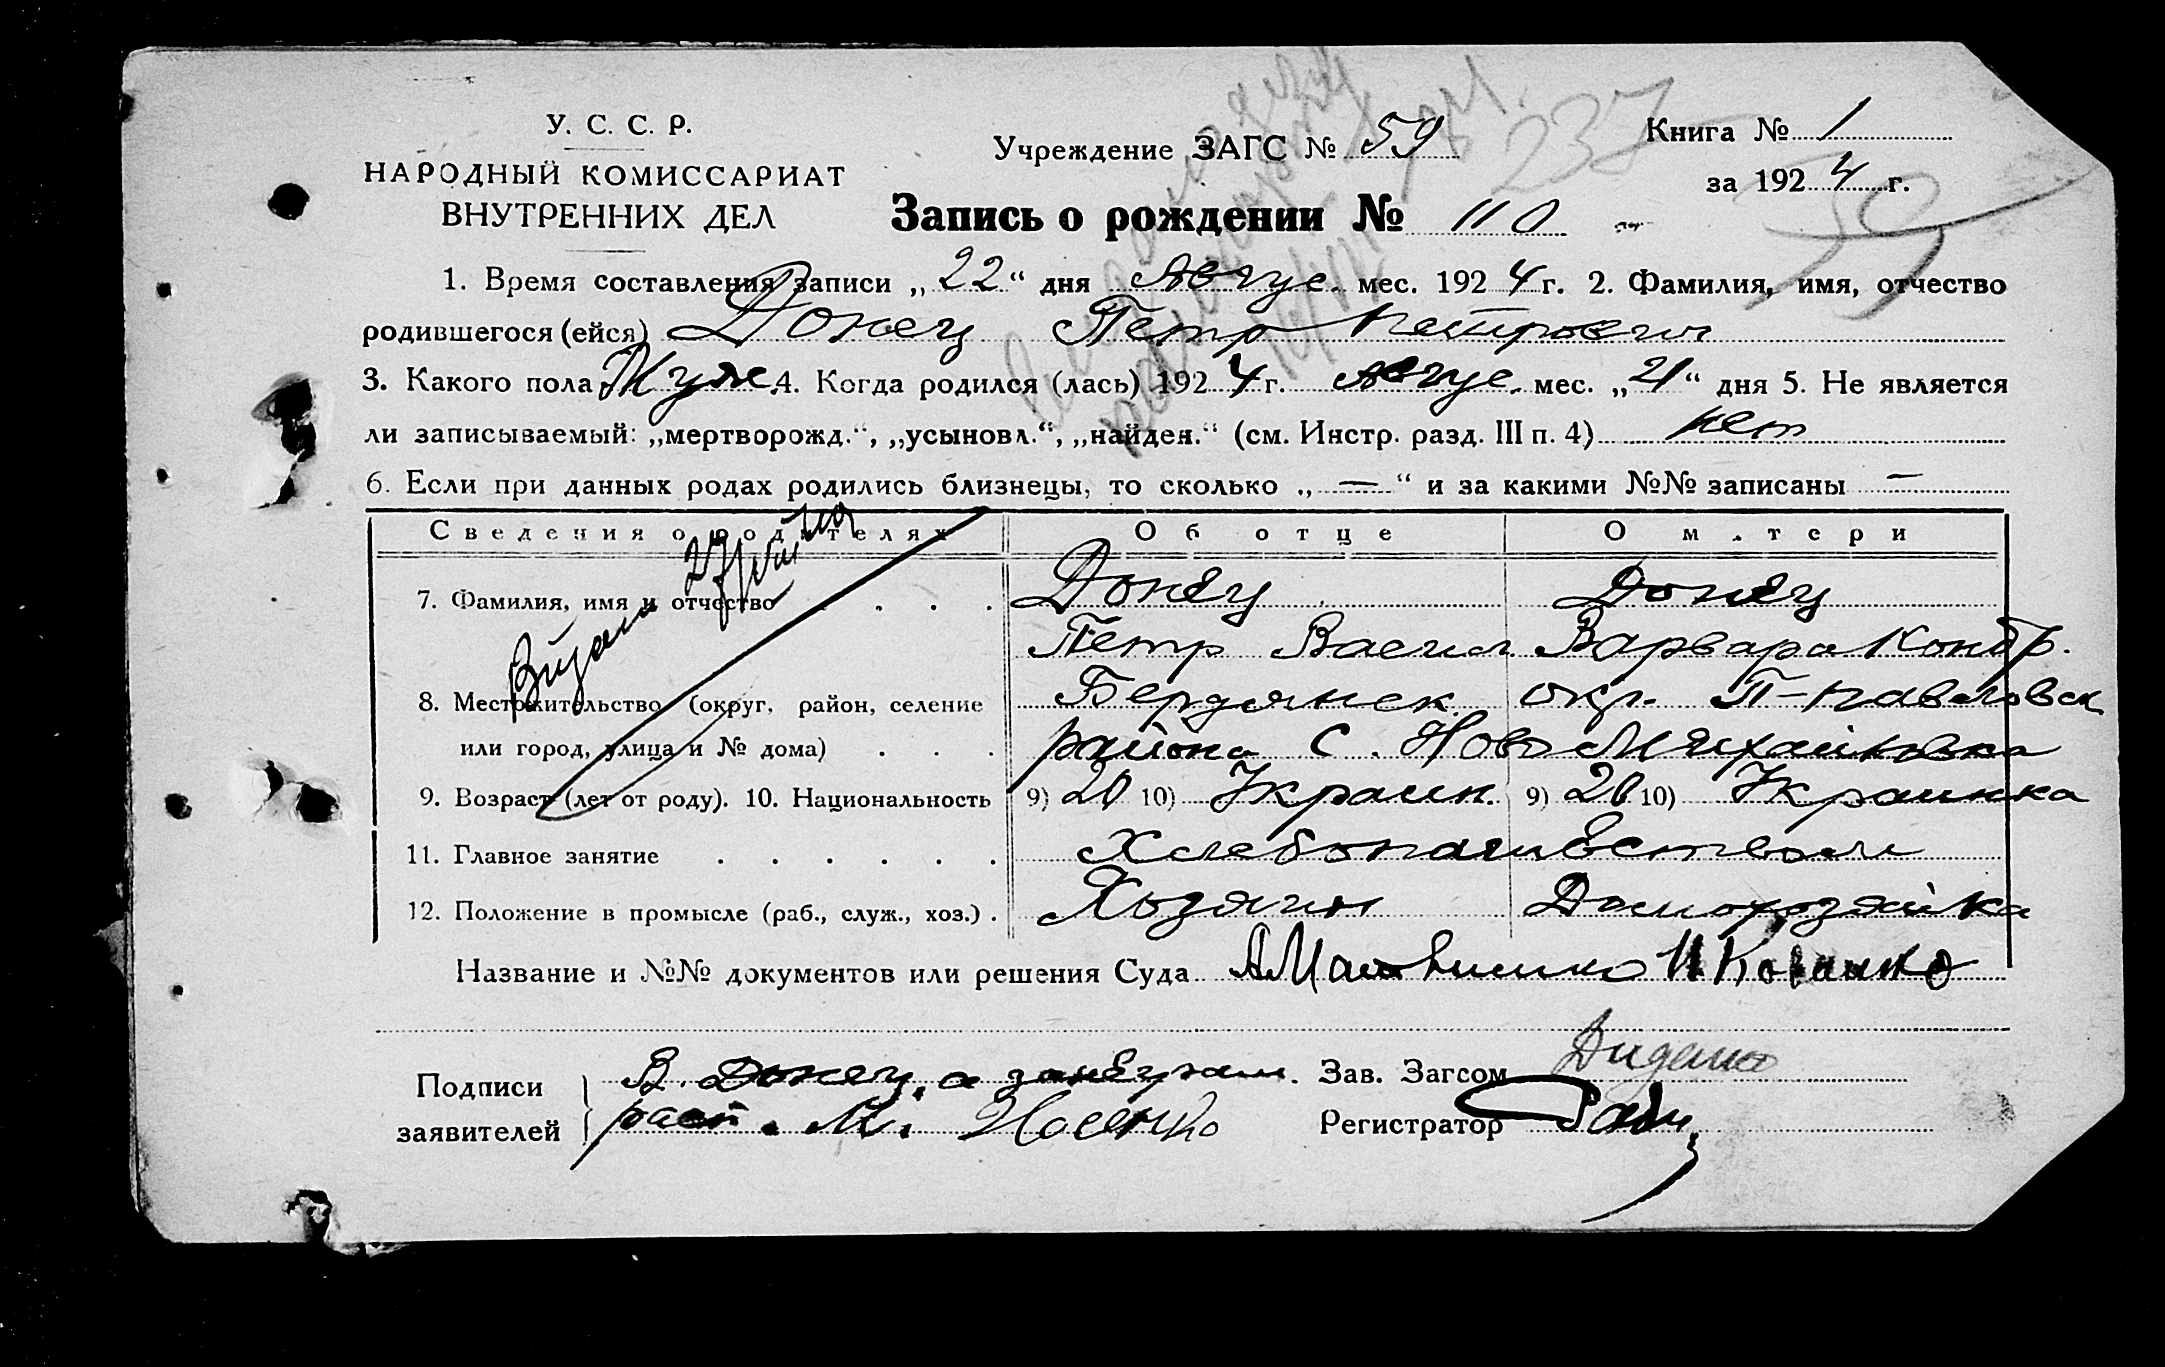 У. С. С. Р.
НАРОДНЫЙ КОМИССАРИАТ
ВНУТРЕННИХ ДЕЛ
Учреждение ЗАГС № 59
237
Книга № 1
за 1924 г.
59
Запись о рождении № 110
1. Время составления записи „22“ дня Авгус. мес. 1924 г. 2. Фамилия, имя, отчество
родившегося (ейся) Донец Петр Петрович
3. Какого пола Муж. 4. Когда родился (лась) 1924 г. Авгус. мес. „21“ дня 5. Не является
ли записываемый: „мертворожд.“, „усыновл.“, „найден.“ (см. Инстр. разд. III п. 4) нет
6. Если при данных родах родились близнецы, то сколько „—“ и за какими №№ записаны —
Сведения о родителях Об отце О матери
7. Фамилия, имя и отчество . . . . Донец Донец
Петр Васил. Варвара Кондр.
8. Местожительство (округ, район, селение Бердянск. окр. П-Павловск
или город, улица и № дома) . . . района с. Ново Михайловка
9. Возраст (лет от роду). 10. Национальность 9) 20 10) Украин. 9) 20 10) Украинка
11. Главное занятие . . . . . . Хлебопашеством
12. Положение в промысле (раб., служ., хоз.) . Хозяин Домохозяйка
Название и №№ документов или решения Суда
Подписи
заявителей
В. Донец, а за неграм.
расп. М. Носенко
Зав. Загсом Диденко
Регистратор